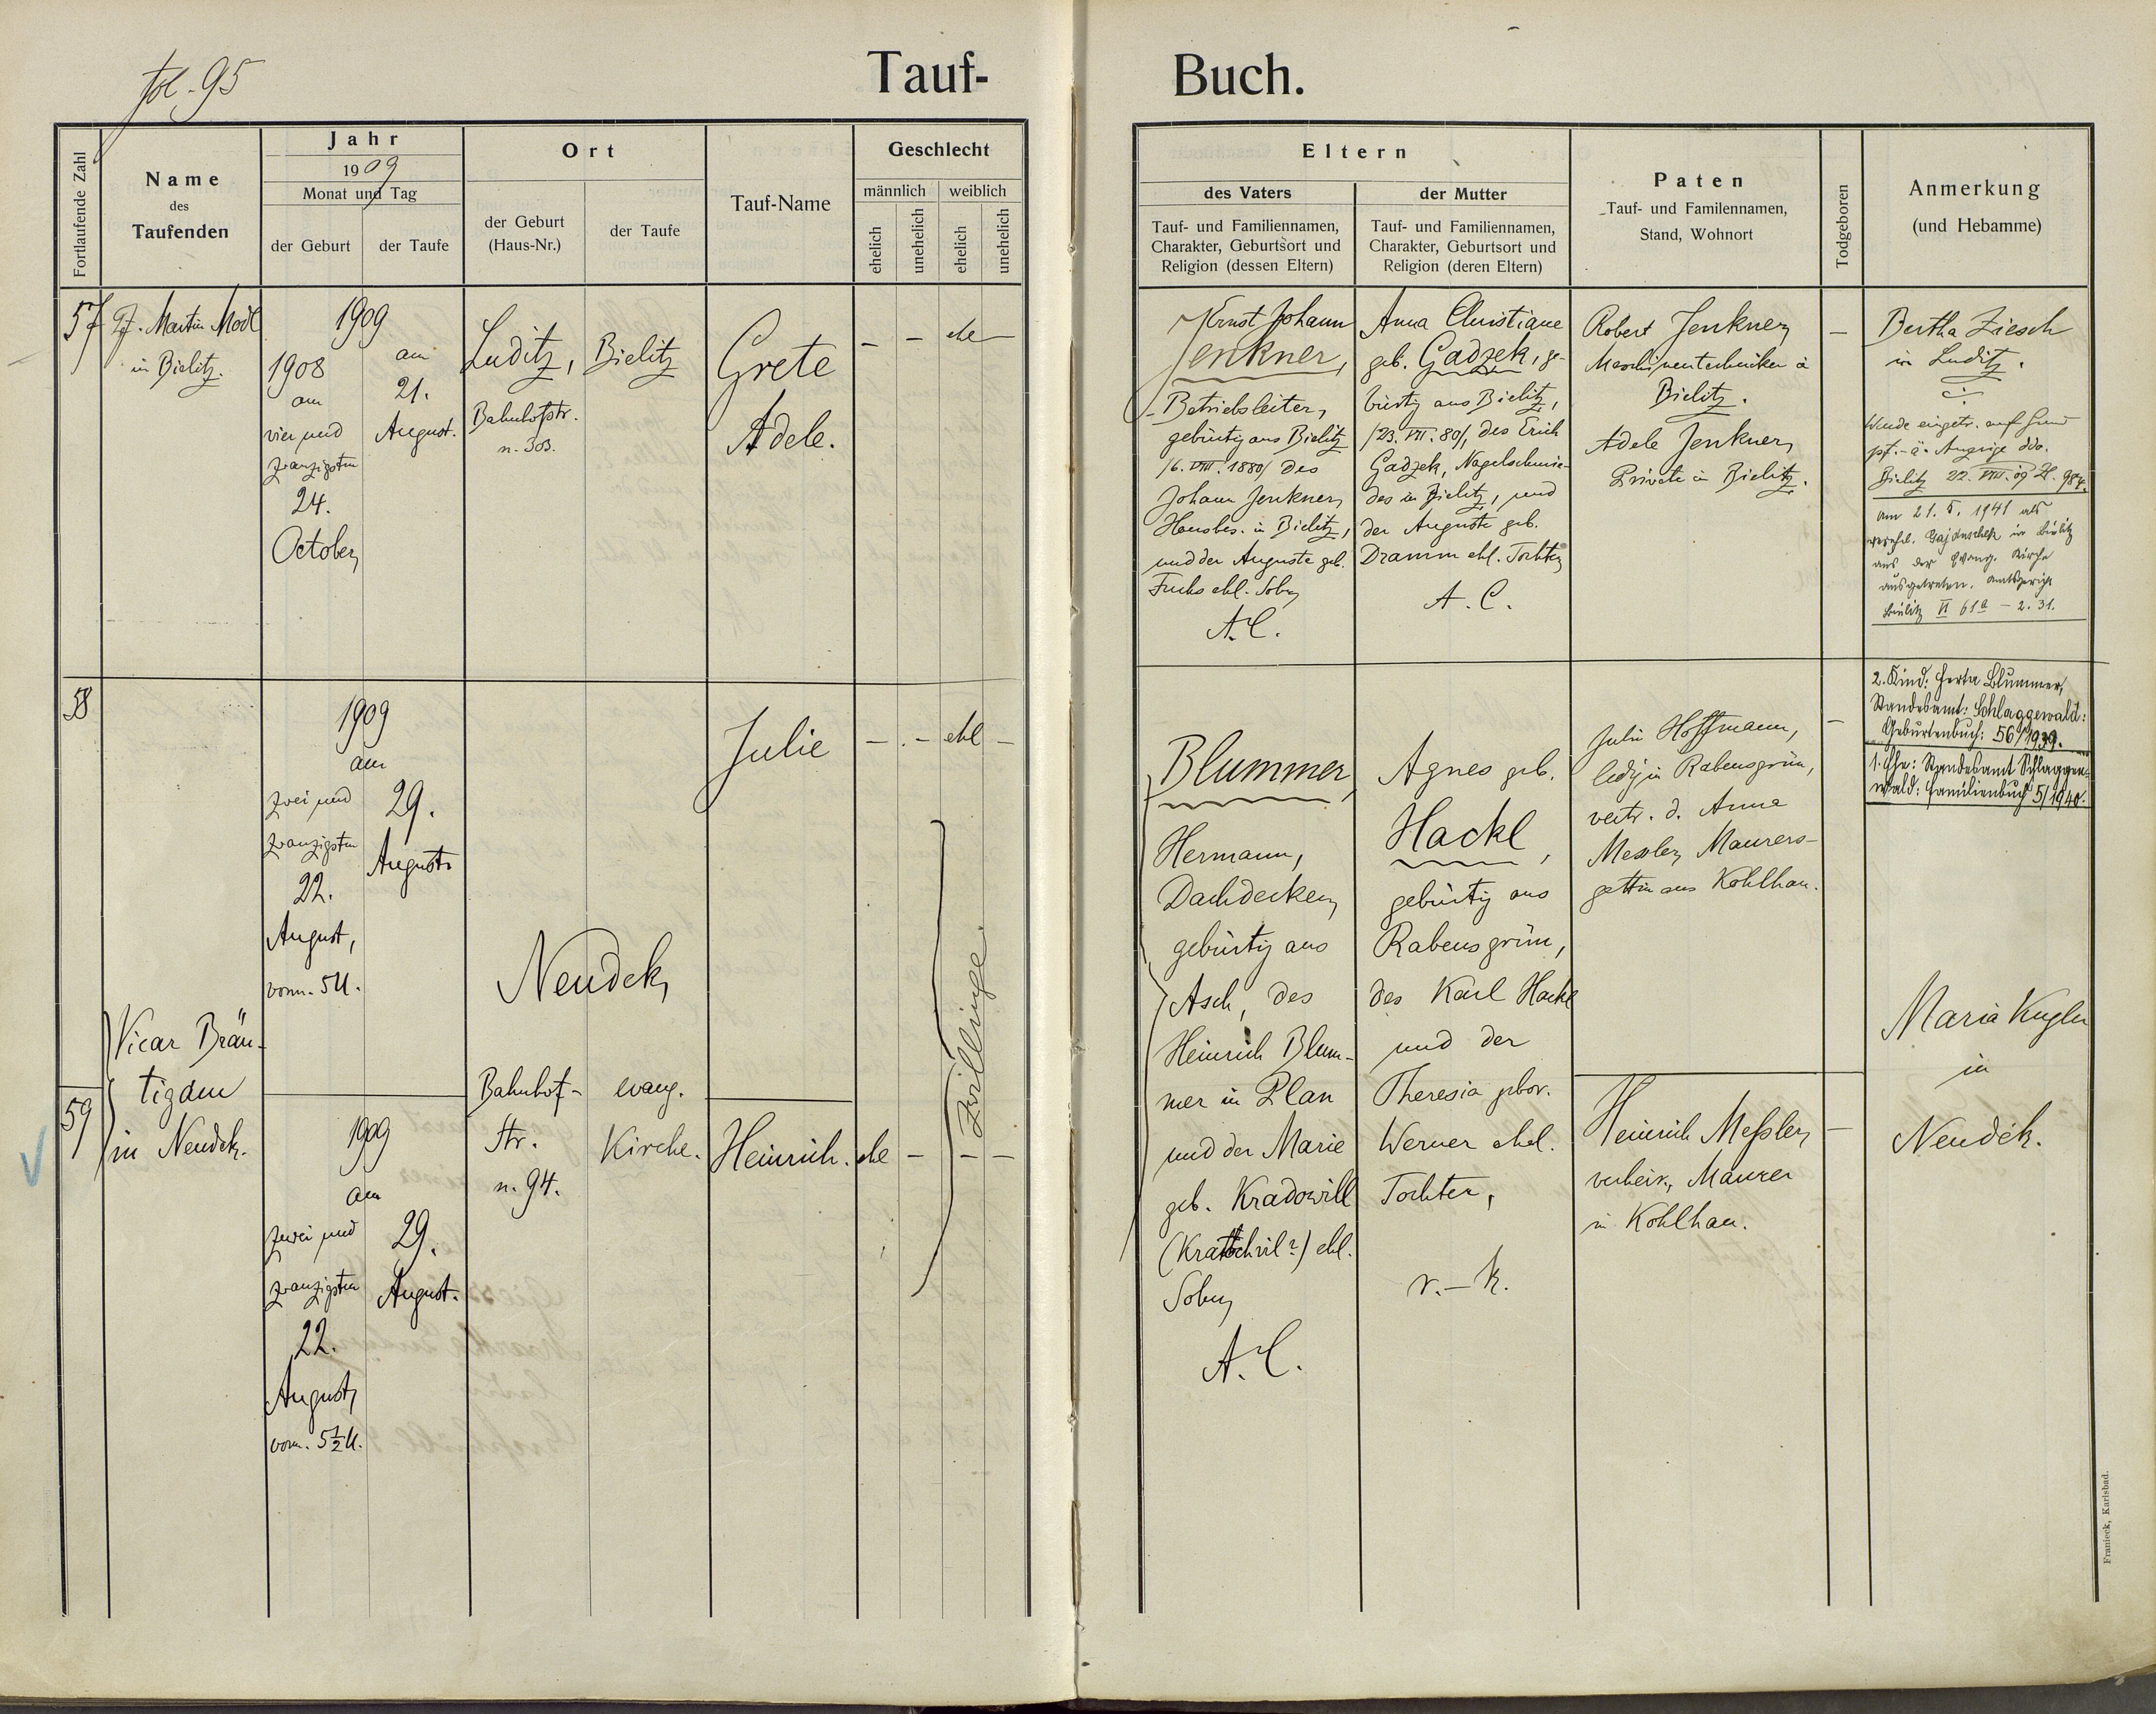 fol. 95
Tauf-
Buch.
Fortlaufende Zahl
Name
des
Taufenden
Jahr
1909
Monat und Tag
der Geburt
der Taufe
Ort
der Geburt
(Haus-Nr.)
der Taufe
Tauf-Name
Geschlecht
männlich
weiblich
ehelich
unehelich
ehelich
unehelich
Eltern
des Vaters
Tauf- und Familiennamen,
Charakter, Geburtsort und
Religion (dessen Eltern)
der Mutter
Tauf- und Familiennamen,
Charakter, Geburtsort und
Religion (deren Eltern)
Paten
Tauf- und Familennamen,
Stand, Wohnort
Todgeboren
Anmerkung
(und Hebamme)
57
Pf. Martin Modl
in Bielitz.
1908
am
vier und
zwanzigsten
24.
October
1909
am
21.
August.
Luditz,
Bahnhofstr.
n. 303.
Bielitz
Grete
Adele.
– – ehe –
Ernst Johann
Jenkner,
Betriebsleiter,
gebürtig aus Bielitz
/6. VIII. 1880/ des
Johann Jenkner,
Hausbes. in Bielitz,
und der Auguste geb.
Fuchs ehl. Sohn
A. C.
Anna Christiane
geb. Gadzek, ge-
bürtig aus Bielitz,
/23. VII. 80/, des Erich
Gadzek, Nagelschmie-
des in Bielitz, und
der Auguste geb.
Dramm ehl. Tochter
A. C.
Robert Jenkner,
Maschinentechniker in
Bielitz.
Adele Jenkner,
Private in Bielitz.
–
Bertha Ziesch
in Luditz.
Wurde eingetr. auf Grund
pf.-ä. Anzeige ddo.
Bielitz 22. VIII. 09 Zl. 984.
Am 21. 5. 1941 als
verehel. in Bielitz
aus der Evang. Kirche
ausgetreten. Amtsgericht
Bielitz VI 61a – 2. 31.
58
1909
am
zwei und
zwanzigsten
22.
August,
vorm. 5 U.
29.
August
Julie
– . – ehl –
Blummer,
Hermann,
Dachdecker,
gebürtig aus
Asch, des
Heinrich Blum-
mer in Plan
und der Marie
geb. Kradowill
(Kratochvil?) ehl.
Sohn
A. C.
Agnes geb.
Hackl,
gebürtig aus
Rabensgrün,
des Karl Hackl
und der
Theresia gebor.
Werner ehel.
Tochter,
r. – k.
Julie Hoffmann,
ledig in Rabensgrün,
vertr. d. Anna
Messler, Maurers-
gattin aus Kohlhau.
–
2. Kind: Herta Blummer,
Standesamt: Schlaggewald:
Geburtenbuch: 56/1939.
1. Ehe: Standesamt Schlaggen-
wald: Familienbuch 5/1940.
Vicar Bräu-
tigam
in Neudek.
Neudek,
Bahnhof-
str.
n. 94.
evang.
Kirche.
Zwillinge.
Maria Kugler
in
Neudek.
59
1909
am
zwei und
zwanzigsten
22.
August,
vorm. 5½ U.
29.
August.
Heinrich.
ehe – – –
Heinrich Meßler,
verheir., Maurer
in Kohlhau.
–
Franieck, Karlsbad.